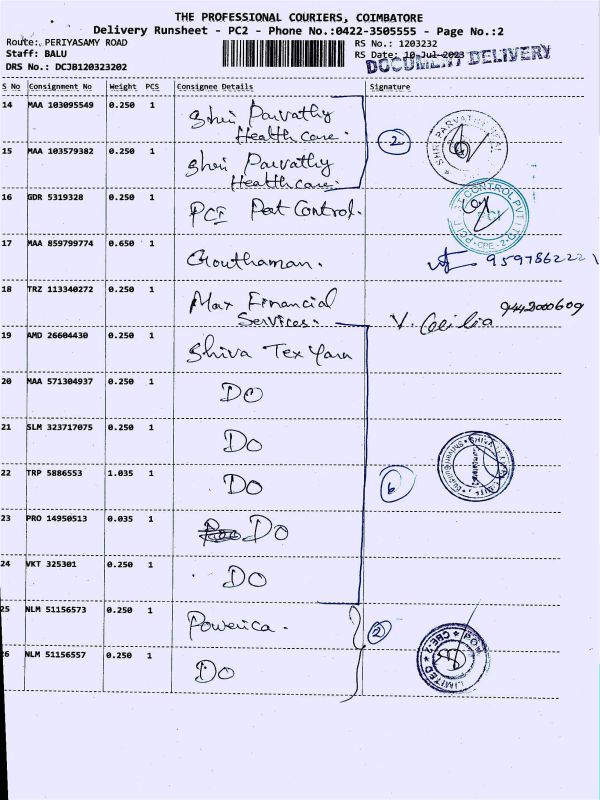 THE PROFESSIONAL COURIERS, COIMBATORE
Delivery Runsheet - PC2 - Phone No.:0422-3505555 - Page No.:2
Route: PERIYASAMY ROAD
RS No.: 1203232
Staff: BALU
RS Date: 10-Jul-2023
DRS No.: DCJB120323202
DOCUMENT DELIVERY
S No Consignment No Weight PCS Consignee Details Signature
14 MAA 103095549 0.250 1 Shri Parvathy
Health care.
15 MAA 103579382 0.250 1 Shri Parvathy
Health care.
2
SHRI PARVATHY
16 GDR 5319328 0.250 1 PCI Pest Control.
PCI
17 MAA 859799774 0.650 1 Gouthaman. 9597862221
18 TRZ 113340272 0.250 1 Max Financial
Services. V. Cecilia 9442000609
19 AMD 26604430 0.250 1 Shiva Tex Yarn
20 MAA 571304937 0.250 1 DO
21 SLM 323717075 0.250 1 DO
22 TRP 5886553 1.035 1 DO
6
23 PRO 14950513 0.035 1 DO
24 VKT 325301 0.250 1 DO
25 NLM 51156573 0.250 1 Powerica.
2
26 NLM 51156557 0.250 1 DO
LIMITED